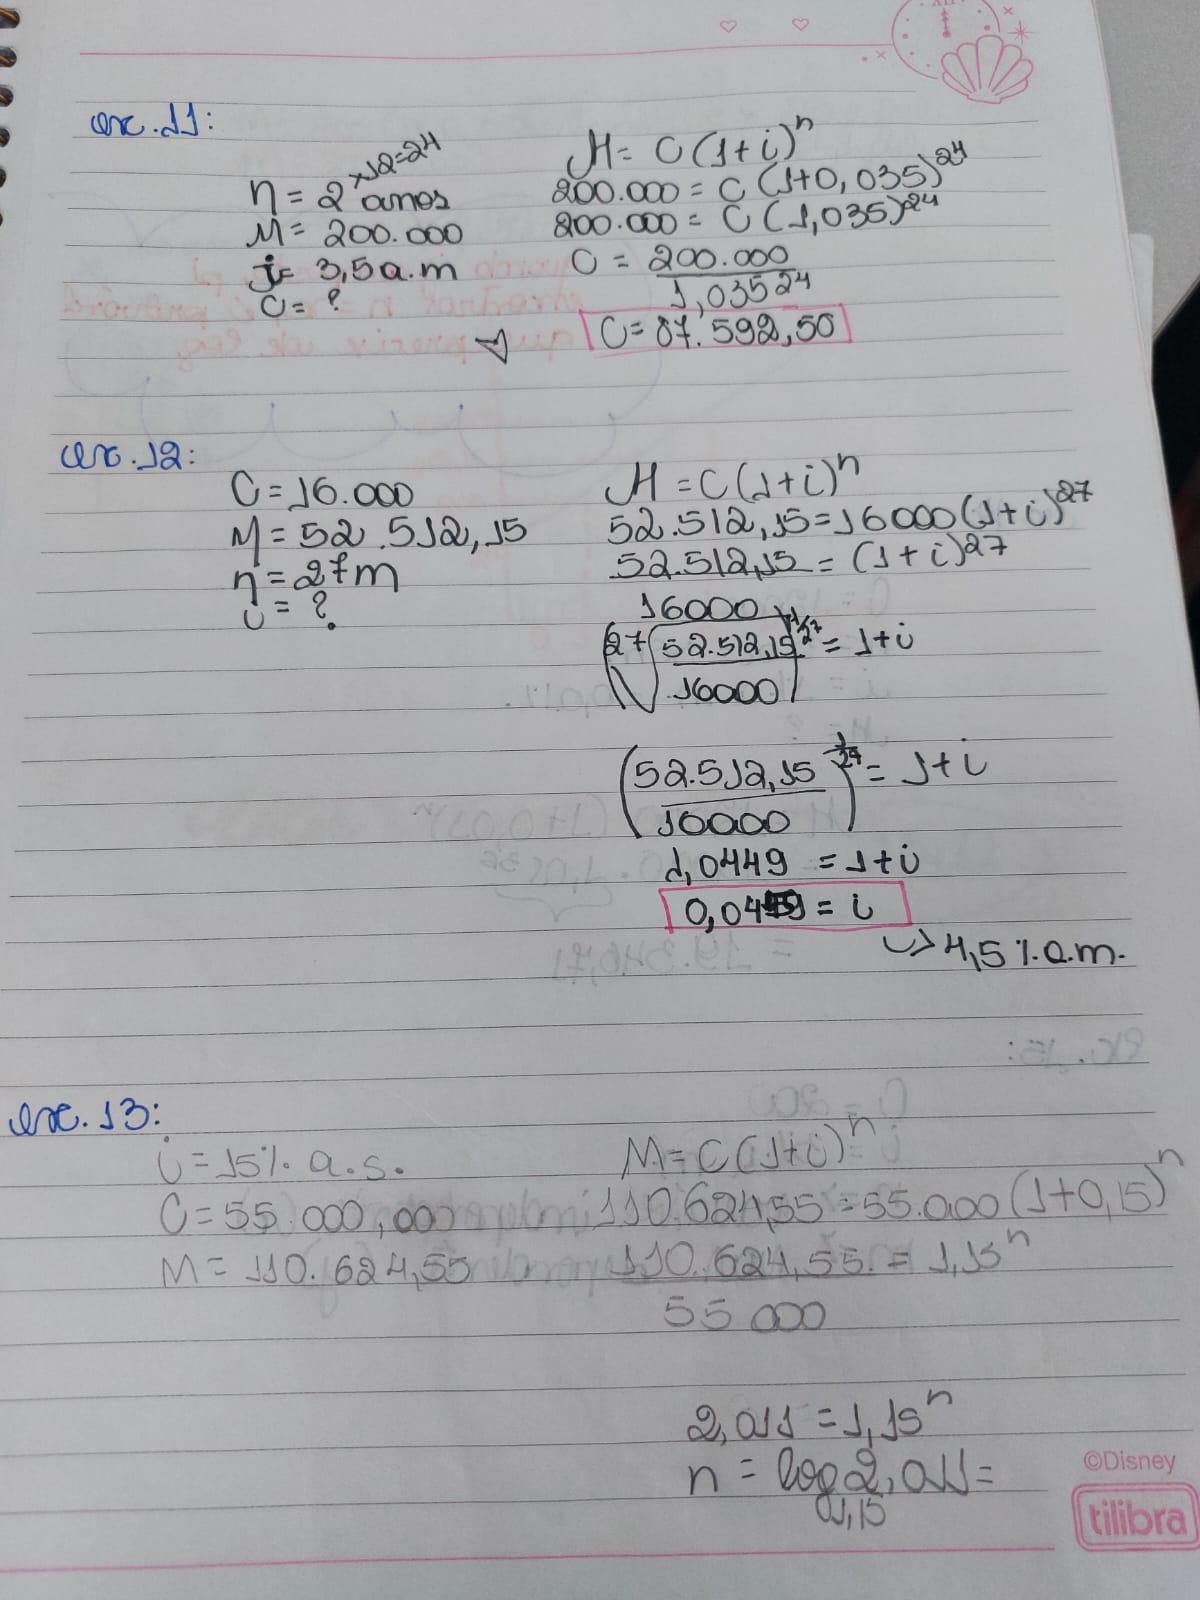 XII
ex. 11:
n = 2 anos x12=24
M = 200.000
i = 3,5 a.m
C = ?
M = C (1+i)^n
200.000 = C (1+0,035)^24
200.000 = C (1,035)^24
C = 200.000
1,035^24
C = 87.592,50
ex. 12:
C = 16.000
M = 52.512,15
n = 27m
i = ?
M = C (1+i)^n
52.512,15 = 16000 (1+i)^27
52.512,15 = (1+i)^27
16000
(27√52.512,15)^1/27 = 1+i
16000
(52.512,15)^1/27 = 1+i
16000
1,0449 = 1+i
0,0449 = i
↳ 4,5 %.a.m.
ex. 13:
i = 15%. a.s.
C = 55.000,000
M = 110.624,55
M = C (1+i)^n
110.624,55 = 55.000 (1+0,15)^n
110.624,55. = 1,15^n
55 000
2,011 = 1,15^n
n = log 2,011 =
1,15
©Disney
tilibra